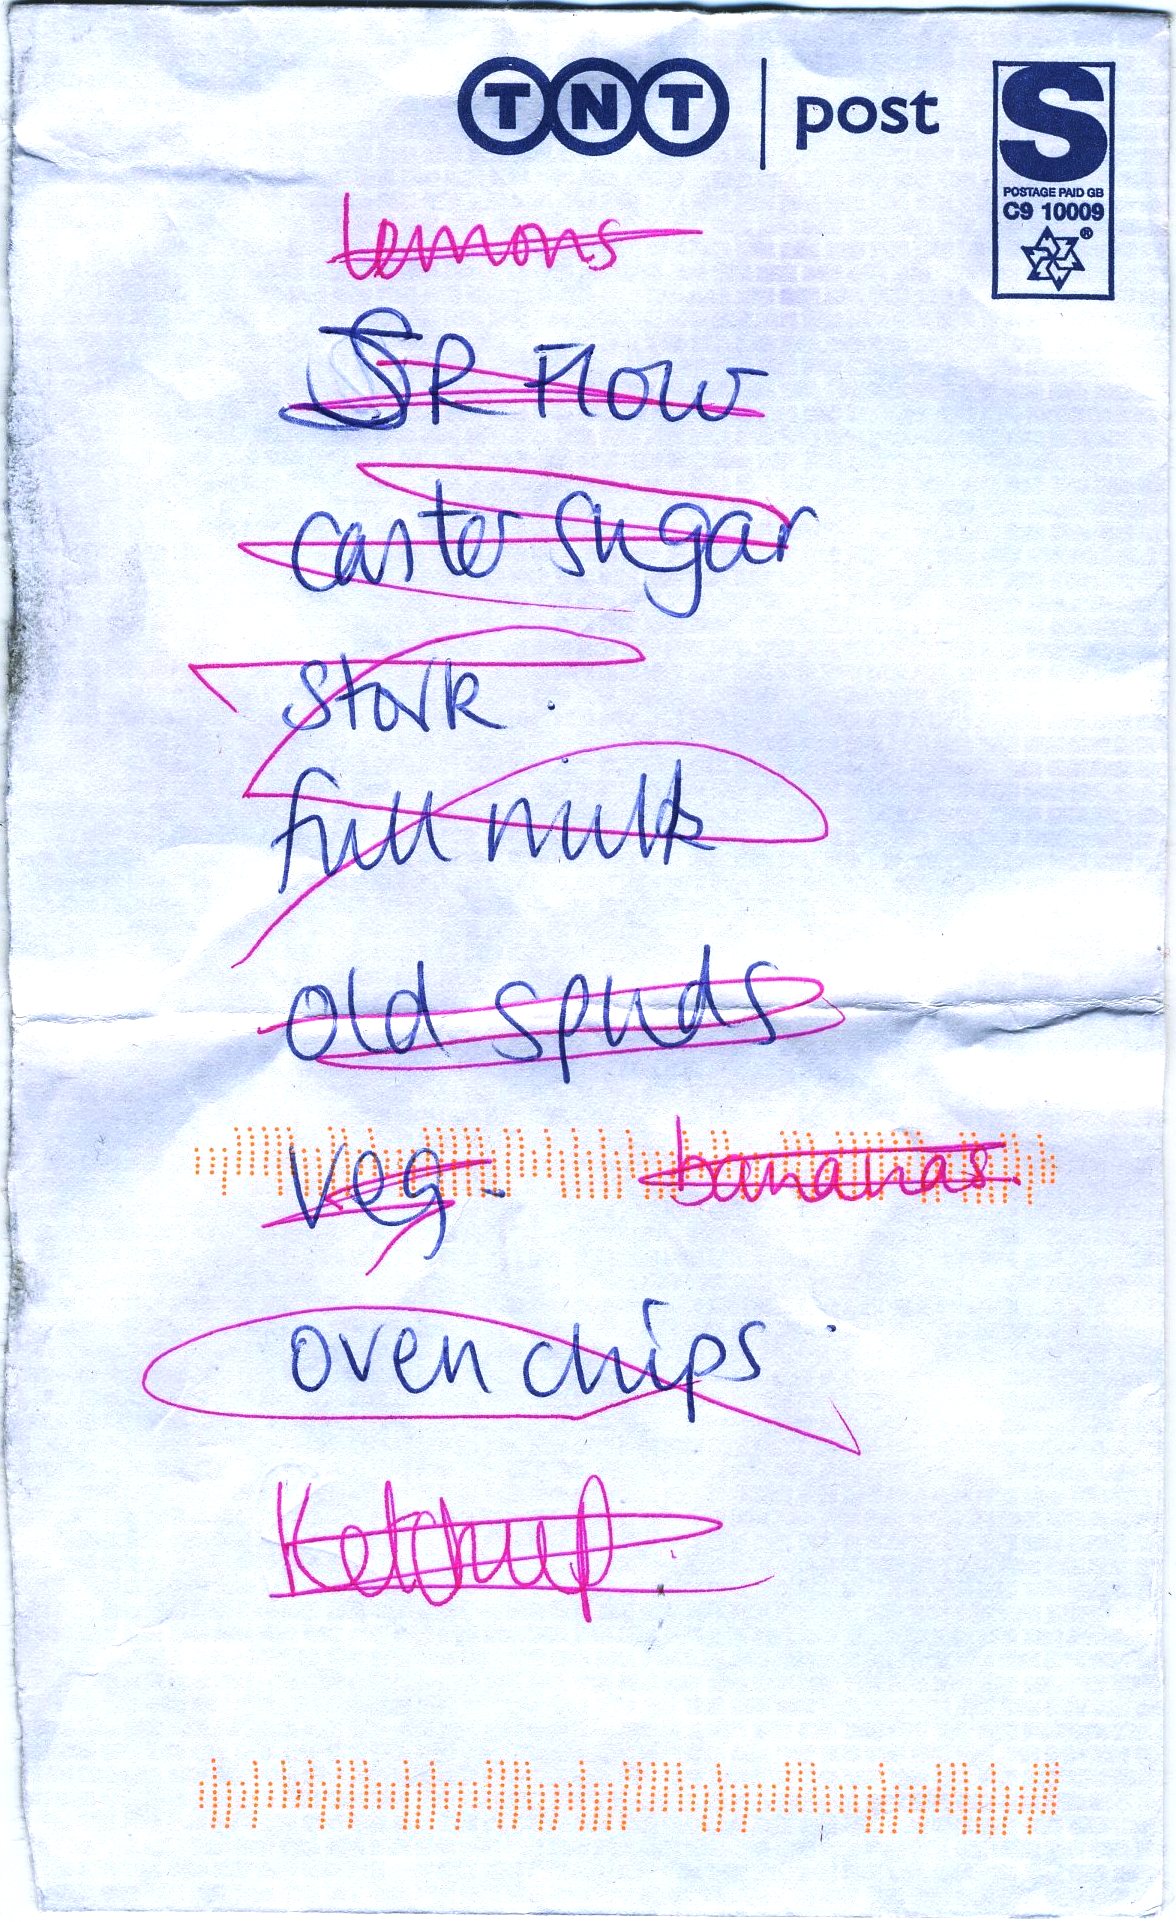 TNT | post
S
POSTAGE PAID GB
C9 10009
®
lemons
SR Flour
caster sugar
Stork.
full milk
old spuds
Veg. bananas.
oven chips.
Ketchup.